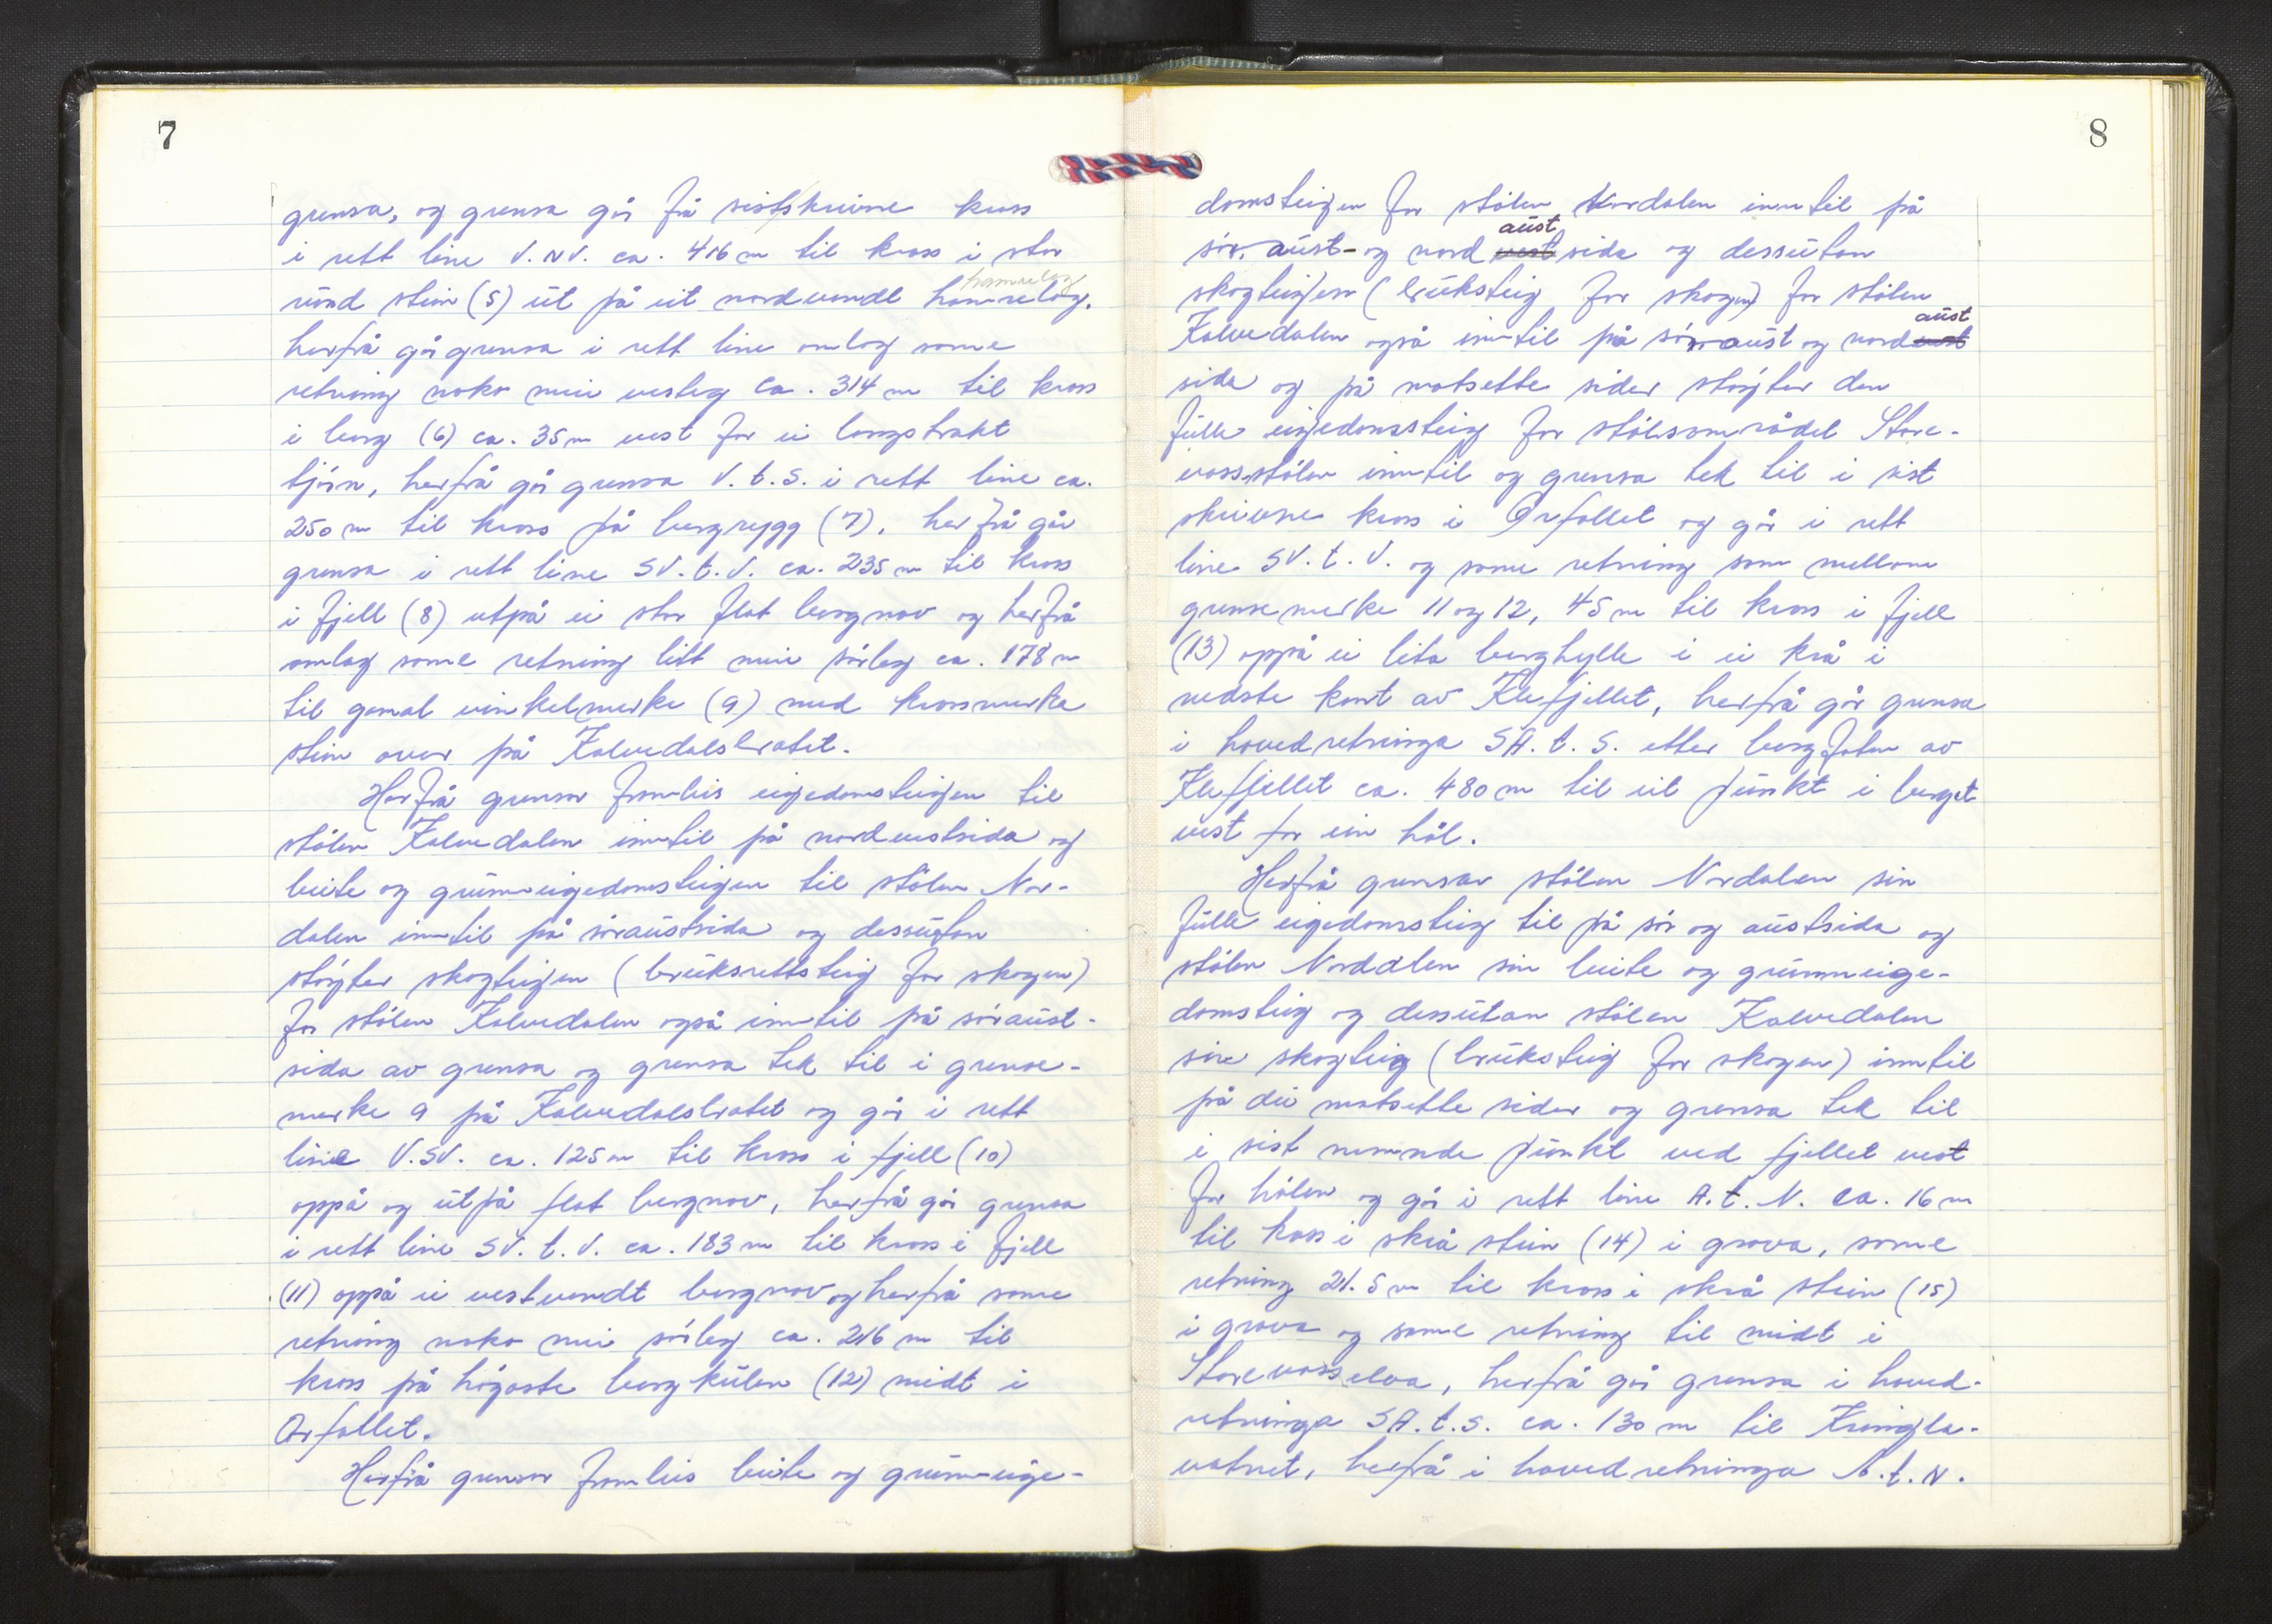 7
grensa, og grensa går frå sistskrivne kross
i rett line V.NV. ca. 416 m til kross i stor
rund stein (5) ut på eit nordvendt hamrelag.
hamrelag
herfrå går grensa i rett line omlag same
retning noko meir vestleg ca. 314 m til kross
i berg (6) ca. 35 m vest for ei langstrakt
tjørn, herfrå går grensa V.t.S. i rett line ca.
250 m til kross på bergrygg (7), herfrå går
grensa i rett line SV.t.V. ca. 235 m til kross
i fjell (8) utpå ei stor flat bergnov og herfrå
omlag same retning litt meir sørleg ca. 178 m
til gamal vinkelmerke (9) med krossmerka
stein over på Kalvedalsbratet.
Herfrå grensar framleis eigedomsteigen til
stølen Kalvedalen inntil på nordvestsida og
beite og grunneigedomsteigen til stølen Nor-
dalen inntil på søraustsida og dessutan
støyter skogteigen (bruksrettsteig for skogen)
for stølen Kalvedalen også inntil på søraust-
sida av grensa og grensa tek til i grense-
merke 9 på Kalvedalsbratet og går i rett
line V.SV. ca. 125 m til kross i fjell (10)
oppå og utpå flat bergnov, herfrå går grensa
i rett line SV.t.V. ca. 183 m til kross i fjell
(11) oppå ei vestvendt bergnov og herfrå same
retning noko meir sørleg ca. 216 m til
kross på høgaste bergkulen (12) midt i
Orfallet.
Herfrå grensar framleis beite og grunneige-
8
domsteigen for stølen Nordalen inntil på
aust
sør, aust- og nord vest sida og dessutan
skogteigen (bruksteig for skogen) for stølen
aust
Kalvedalen også inntil på sør, aust og nordvest
sida og på motsette sider støyter den
fulle eigedomsteig for stølsområdet Store-
vass-stølen inntil og grensa tek til i sist
skrivne kross i Orfallet og går i rett
line SV.t.V. og same retning som mellom
grensemerke 11 og 12, 45 m til kross i fjell
(13) oppå ei lita berghylle i ei krå i
nedste kant av Klefjellet, herfrå går grensa
i hovedretninga SA.t.S. etter bergfoten av
Klefjellet ca. 480 m til eit punkt i berget
vest for ein høl.
Herfrå grensar stølen Nordalen sin
fulle eigedomsteig til på sør og austsida og
stølen Norddlen sin beite og grunneige-
domsteig og dessutan stølen Kalvedalen
sin skogteig (bruksteig for skogen) inntil
på dei motsette sider og grensa tek til
i sist nemnde punkt ved fjellet vest
for hølen og går i rett line A.t.N. ca. 16 m
til kross i skrå stein (14) i grova, same
retning 21.5 m til kross i skrå stein (15)
i grova og same retning til midt i
Storevasselva, herfrå går grensa i hoved-
retninga SA.t.S. ca. 130 m til Kringla-
vatnet, herfrå i hovedretninga A.t.N.